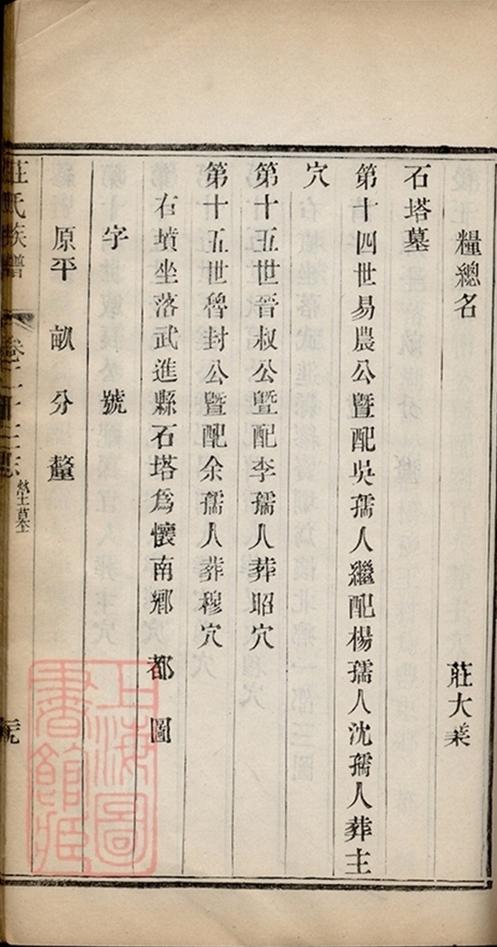 糧總名 莊大業
石塔墓
第十四世易農公暨配吳孺人繼配楊孺人沈孺人葬主
穴
第十五世晉叔公暨配李孺人葬昭穴
第十五世魯封公暨配余孺人葬穆穴
右墳坐落武進縣石塔爲懷南鄉 都 圖
字 號
原平 畝 分 釐
莊氏族譜 卷 塋墓
上海圖書館藏